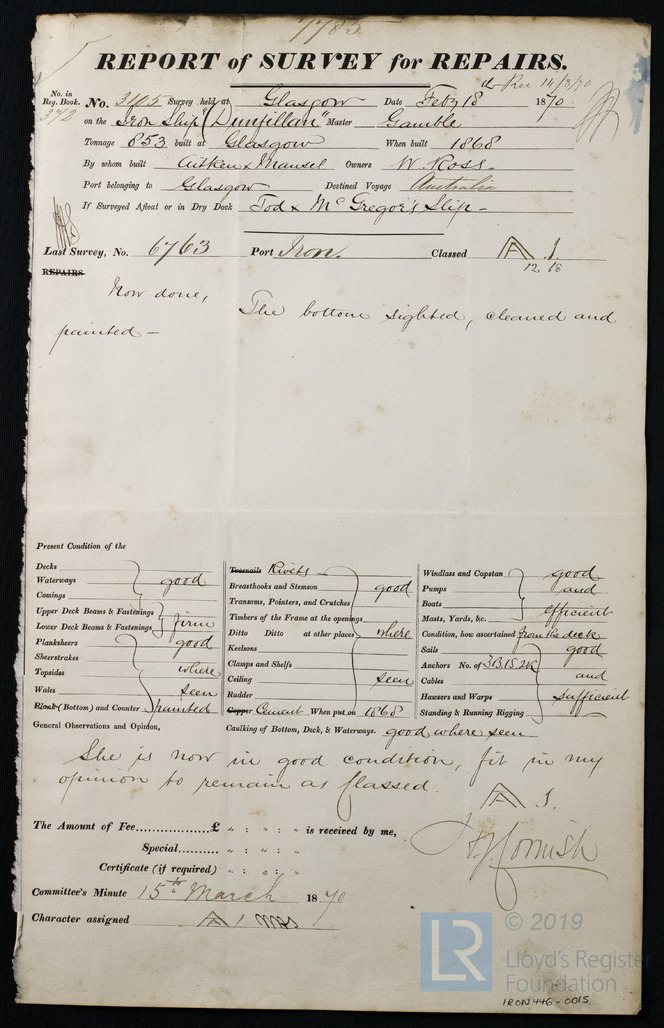 7785
REPORT of SURVEY for REPAIRS.
No. in Reg. Book. 372
Rec 14/3/70
No. 345 Survey held at Glasgow Date Feby 18 1870
on the Iron Ship "Dunfillan" Master Gamble
Tonnage 853 built at Glasgow When built 1868
By whom built Aitken & Mansel Owners W. Ross
Port belonging to Glasgow Destined Voyage Australia
If Surveyed Afloat or in Dry Dock Tod & McGregor's Slip -
Last Survey, No. 6763 Port Iron. Classed A 1.
12. 68
REPAIRS.
Now done, The bottom sighted, cleaned and
painted -
Present Condition of the
Decks
Waterways good
Comings
Upper Deck Beams & Fastenings
Lower Deck Beams & Fastenings firm
Planksheers good
Sheerstrakes
Topsides where
Wales seen
Plank (Bottom) and Counter painted
Treenails Rivits
Breasthooks and Stemson good
Transoms, Pointers, and Crutches
Timbers of the Frame at the openings
Ditto Ditto at other places where
Keelsons
Clamps and Shelfs
Ceiling seen
Rudder
Copper Cement When put on 1868
Windlass and Capstan good
Pumps and
Boats
Masts, Yards, &c. efficient
Condition, how ascertained from the deck
Sails good
Anchors No. of 3B 1S 2K
Cables and
Hawsers and Warps sufficient
Standing & Running Rigging
General Observations and Opinion, Caulking of Bottom, Deck, & Waterways. good where seen
She is now in good condition, fit in my
opinion to remain as classed. A 1.
The Amount of Fee...............£ " : " : " is received by me,
Special.......... " : " : "
Certificate (if required) " : " : "
H. J. Cornish
Committee's Minute 15th March 1870
Character assigned A 1
LR © 2019
Lloyd's Register
Foundation
IRON446-0015